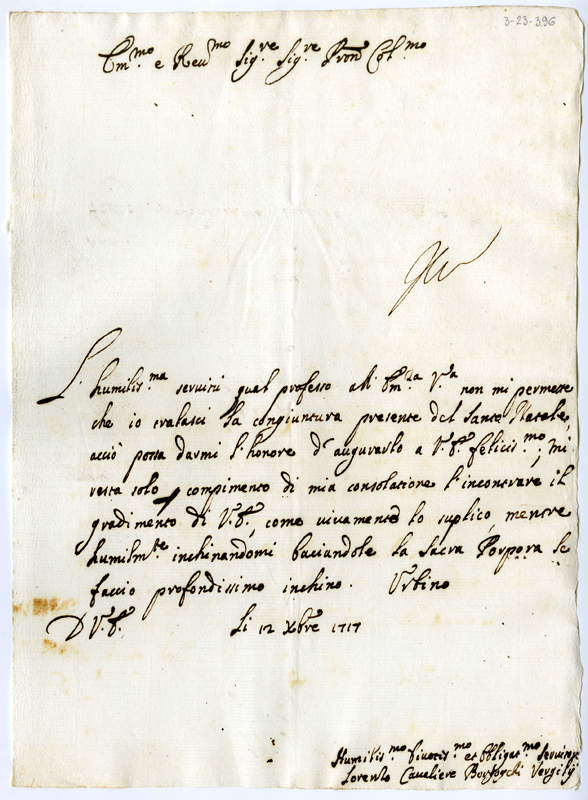 3-23-396
Em.mo e Reu.mo Sig.re Sig.re Pron Col.mo
L' humiliss.ma seruitù qual professo all' Em.za V.ra non mi permette
che io tralasci la congiuntura presente del Santo Natale,
acciò possa darmi l' honore d' augurarlo a V. E. feliciss.mo; mi
resta solo compimento di mia consolatione l' incontrare il
gradimento di V. E., come viuamente lo suplico, mentre
humilm.te inchinandomi baciandole la Sacra Porpora le
faccio profondissimo inchino. Vrbino
D V. E. li 12 Xbre 1717
Humiliss.mo Diuotiss.mo et Obligat.mo Seruitore
Lorento Caualiere Vergilij